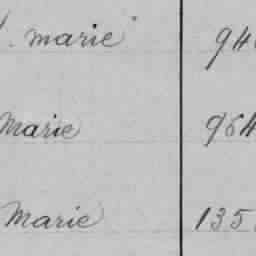 . marie 94
Marie 964
Marie 135